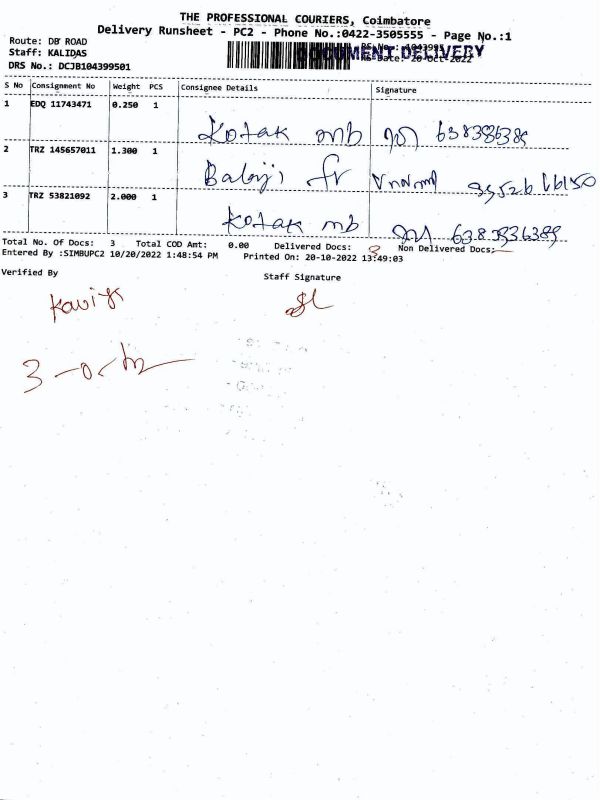 THE PROFESSIONAL COURIERS, Coimbatore
Delivery Runsheet - PC2 - Phone No.:0422-3505555 - Page No.:1
Route: DB ROAD
DOCUMENT DELIVERY
Staff: KALIDAS
DRS No.: DCJB104399501
S No Consignment No Weight PCS Consignee Details Signature
1 EDQ 11743471 0.250 1
Kotak mb
2 TRZ 145657011 1.300 1
Balaji fr
3 TRZ 53821092 2.000 1
Kotak mb
Total No. Of Docs: 3 Total COD Amt: 0.00 Delivered Docs: 3 Non Delivered Docs:
Entered By :SIMBUPC2 10/20/2022 1:48:54 PM Printed On: 20-10-2022 13:49:03
Verified By Staff Signature